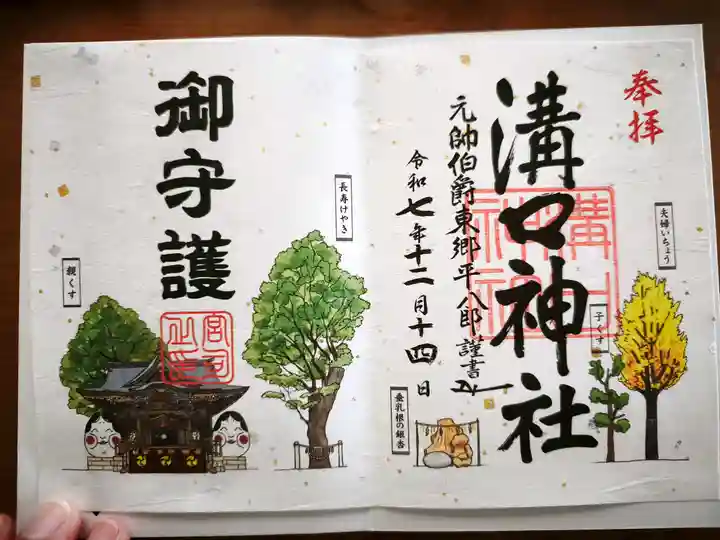 奉拝
溝口神社
元帥伯爵東郷平八郎謹書
令和七年十二月十四日
夫婦いちょう
子くす
垂乳根の銀杏
長寿けやき
御守護
親くす